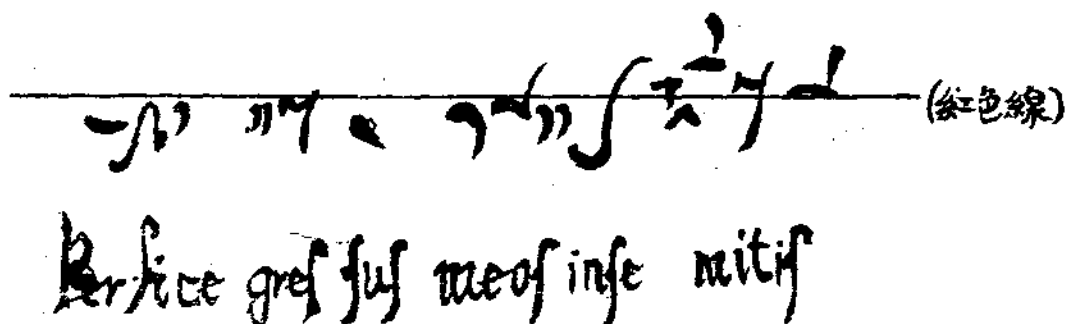 (紅色線)
Perfice greſ ſuſ meoſ inſe mitiſ